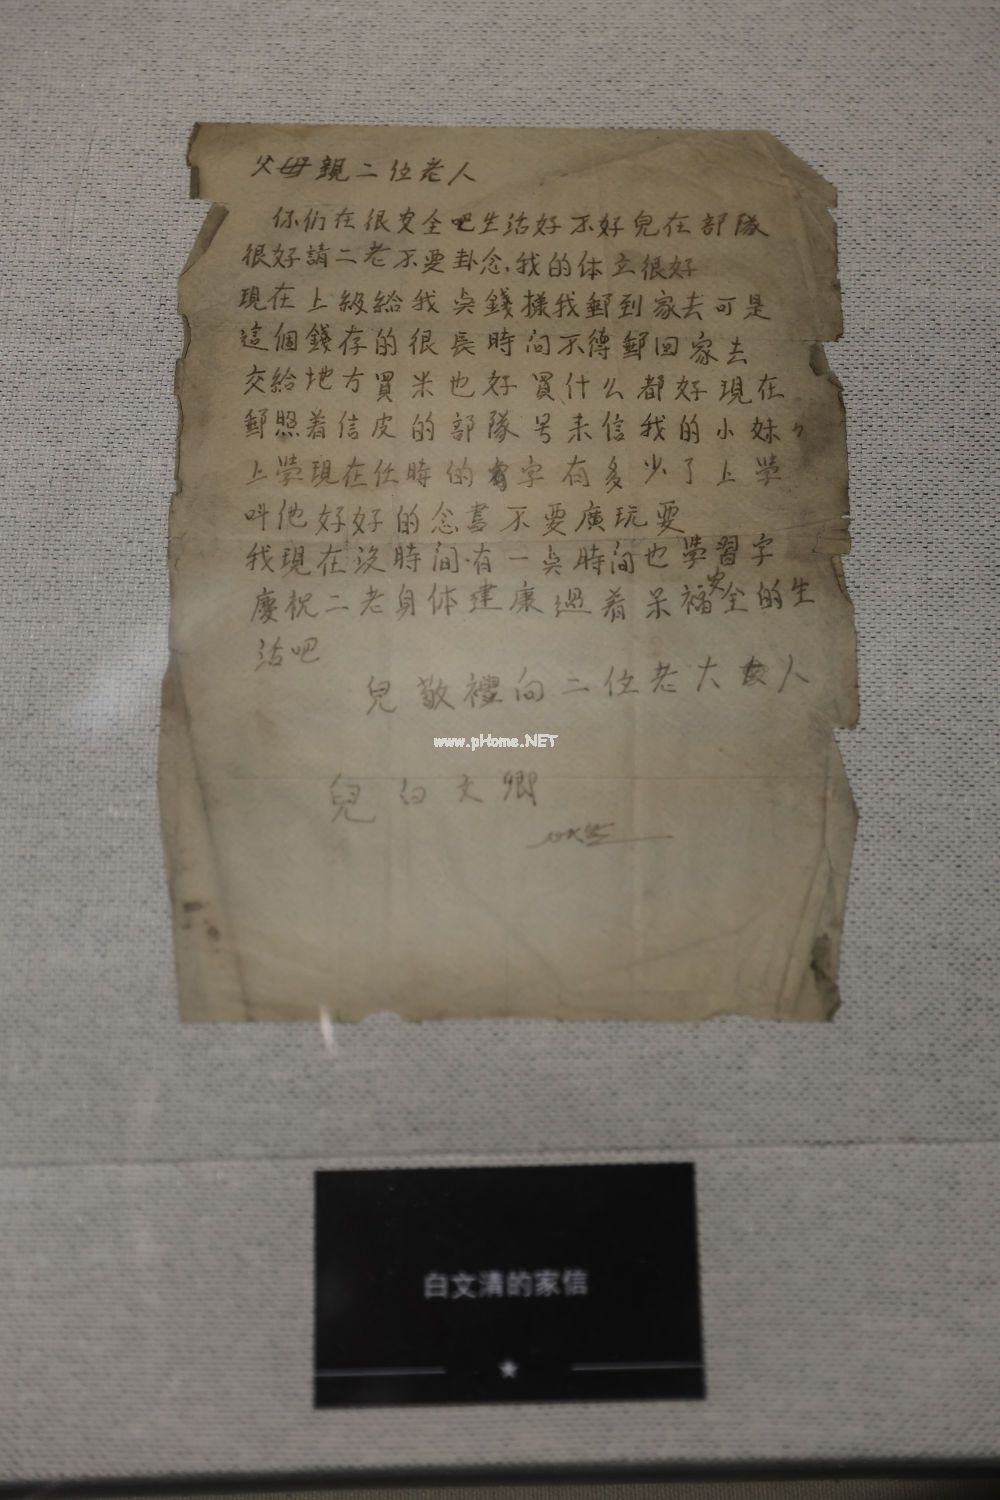 父母親二位老人
你們在很安全吧生活好不好兒在部隊
很好請二老不要卦念.我的体立很好
現在上級給我吳錢樣我郵到家去可是
這個錢存的很長時间不得郵回家去
交給地方買米也好買什么都好現在
郵照着信皮的部隊号来信我的小妹々
上學現在任時的字有多少了上學
叫他好好的念書不要廣玩耍
我現在沒時间有一吳時间也學習字
慶祝二老身体建康過着呆福安全的生
活吧
兒敬禮向二位老大人
www.pHome.NET
兒白文卿
白文清的家信